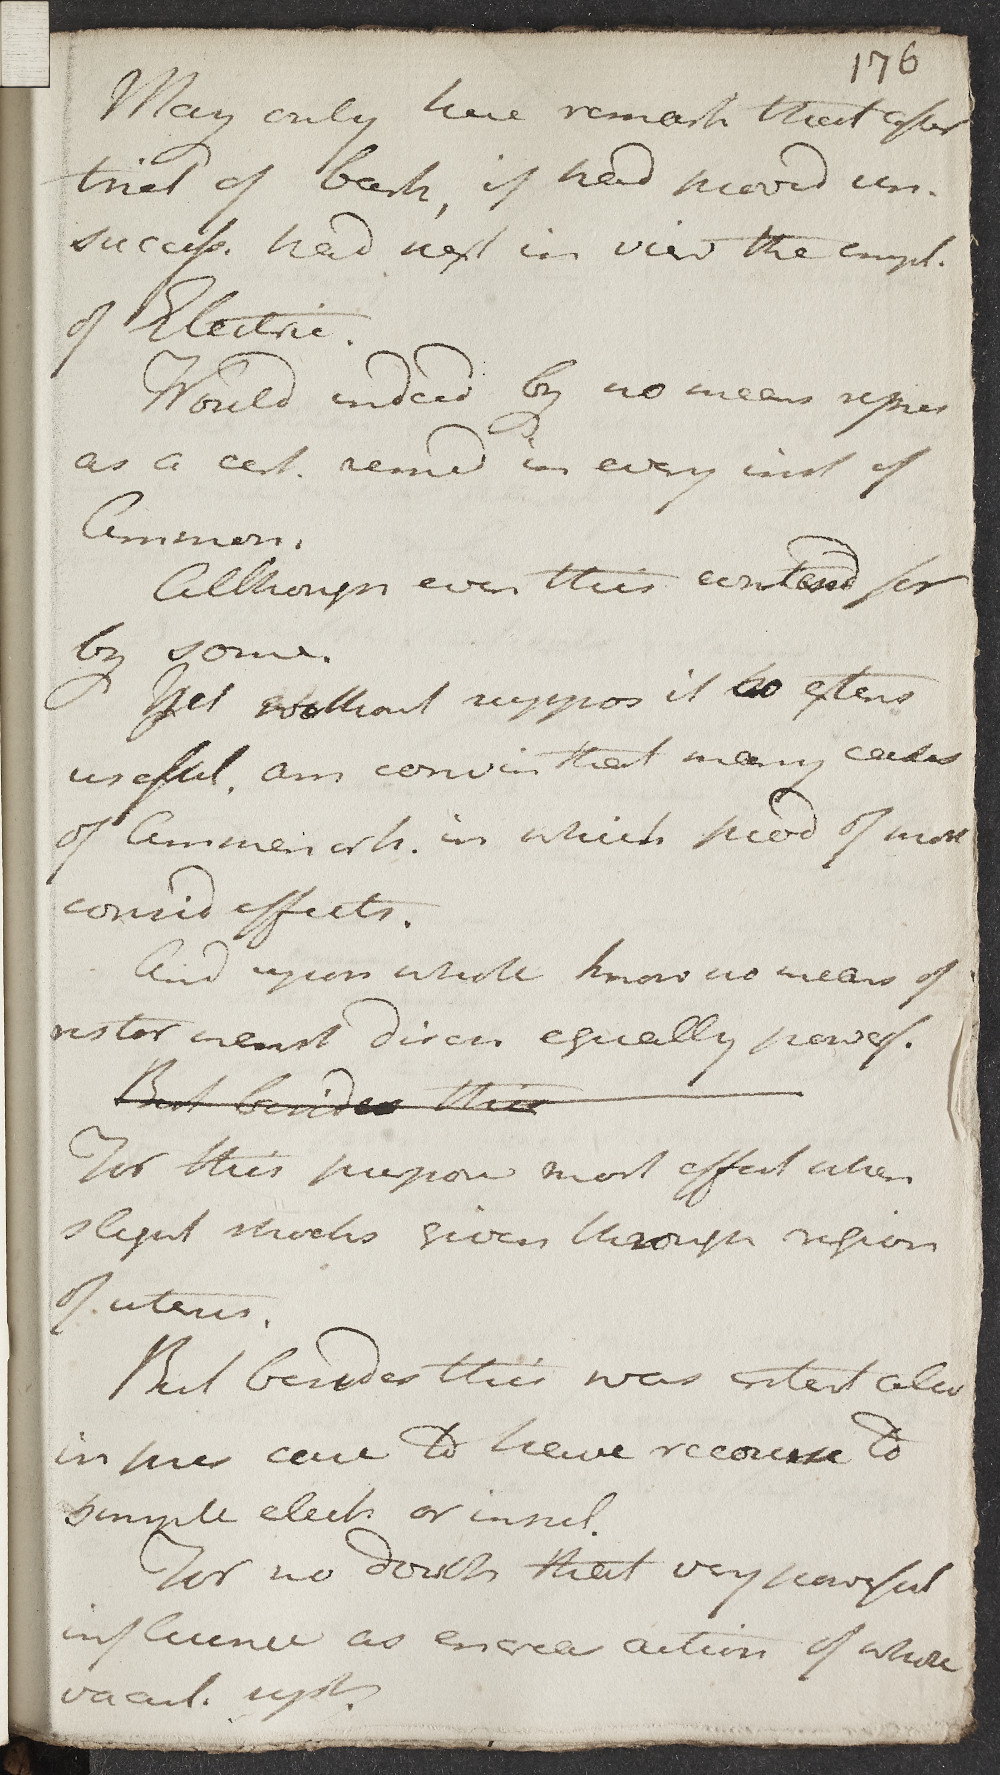 176
May only here remark that after
trial of bark, if had provd un-
success. had next in view the empl.
of Electric.
Would indeed by no means repres
as a cert. remed in every inst of
Ammen.
Although even this contend for
by some.
Yet without suppos it so extens
useful, am convin that many cases
of Ammenorh. in which prod of most
consid effects.
And upon whole know no means of
restor menst discn equally powerf.
But besides this
For this purpose most effect when
slight shocks given through region
of uterus.
But besides this was intent also
in pres case to have recourse to
simple elect. or insul.
For no doubt that very powerful
influence as encrea action of whole
vascul. syst.